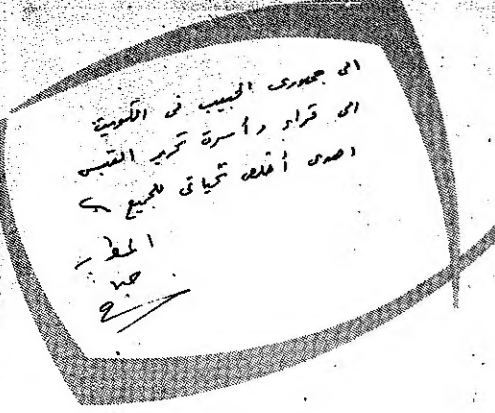 الى جمهورى الحبيب فى الكويت
الى قراء وأسرة تحرير القبس
اهدى أخلص تحياتى للجميع
المطرب